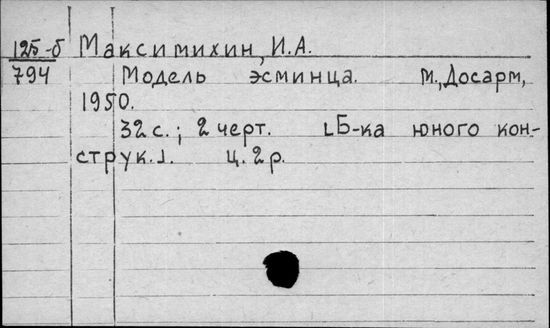 125-б Максимихин, И.А.
794 Модель эсминца. М., Досарм,
1950.
32 с.; 2 черт. [Б-ка юного кон-
струк.]. Ц. 2 р.